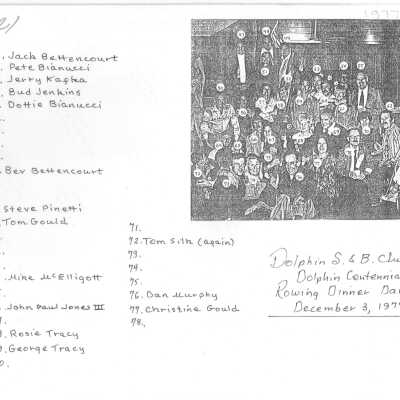 1977
. Jack Bettencourt
. Pete Bianucci
. Jerry Kafka
. Bud Jenkins
. Dottie Bianucci
.
.
.
.
. Bev Bettencourt
. Steve Pinetti
. Tom Gould
.
.
. Mike McElligott
.
. John Paul Jones III
.
. Rosie Tracy
. George Tracy
0.
71.
72. Tom Silk (again)
73.
74.
75.
76. Dan Murphy
77. Christine Gould
78.
Dolphin S. & B. Clu
Dolphin Centennia
Rowing Dinner Da
December 3, 197